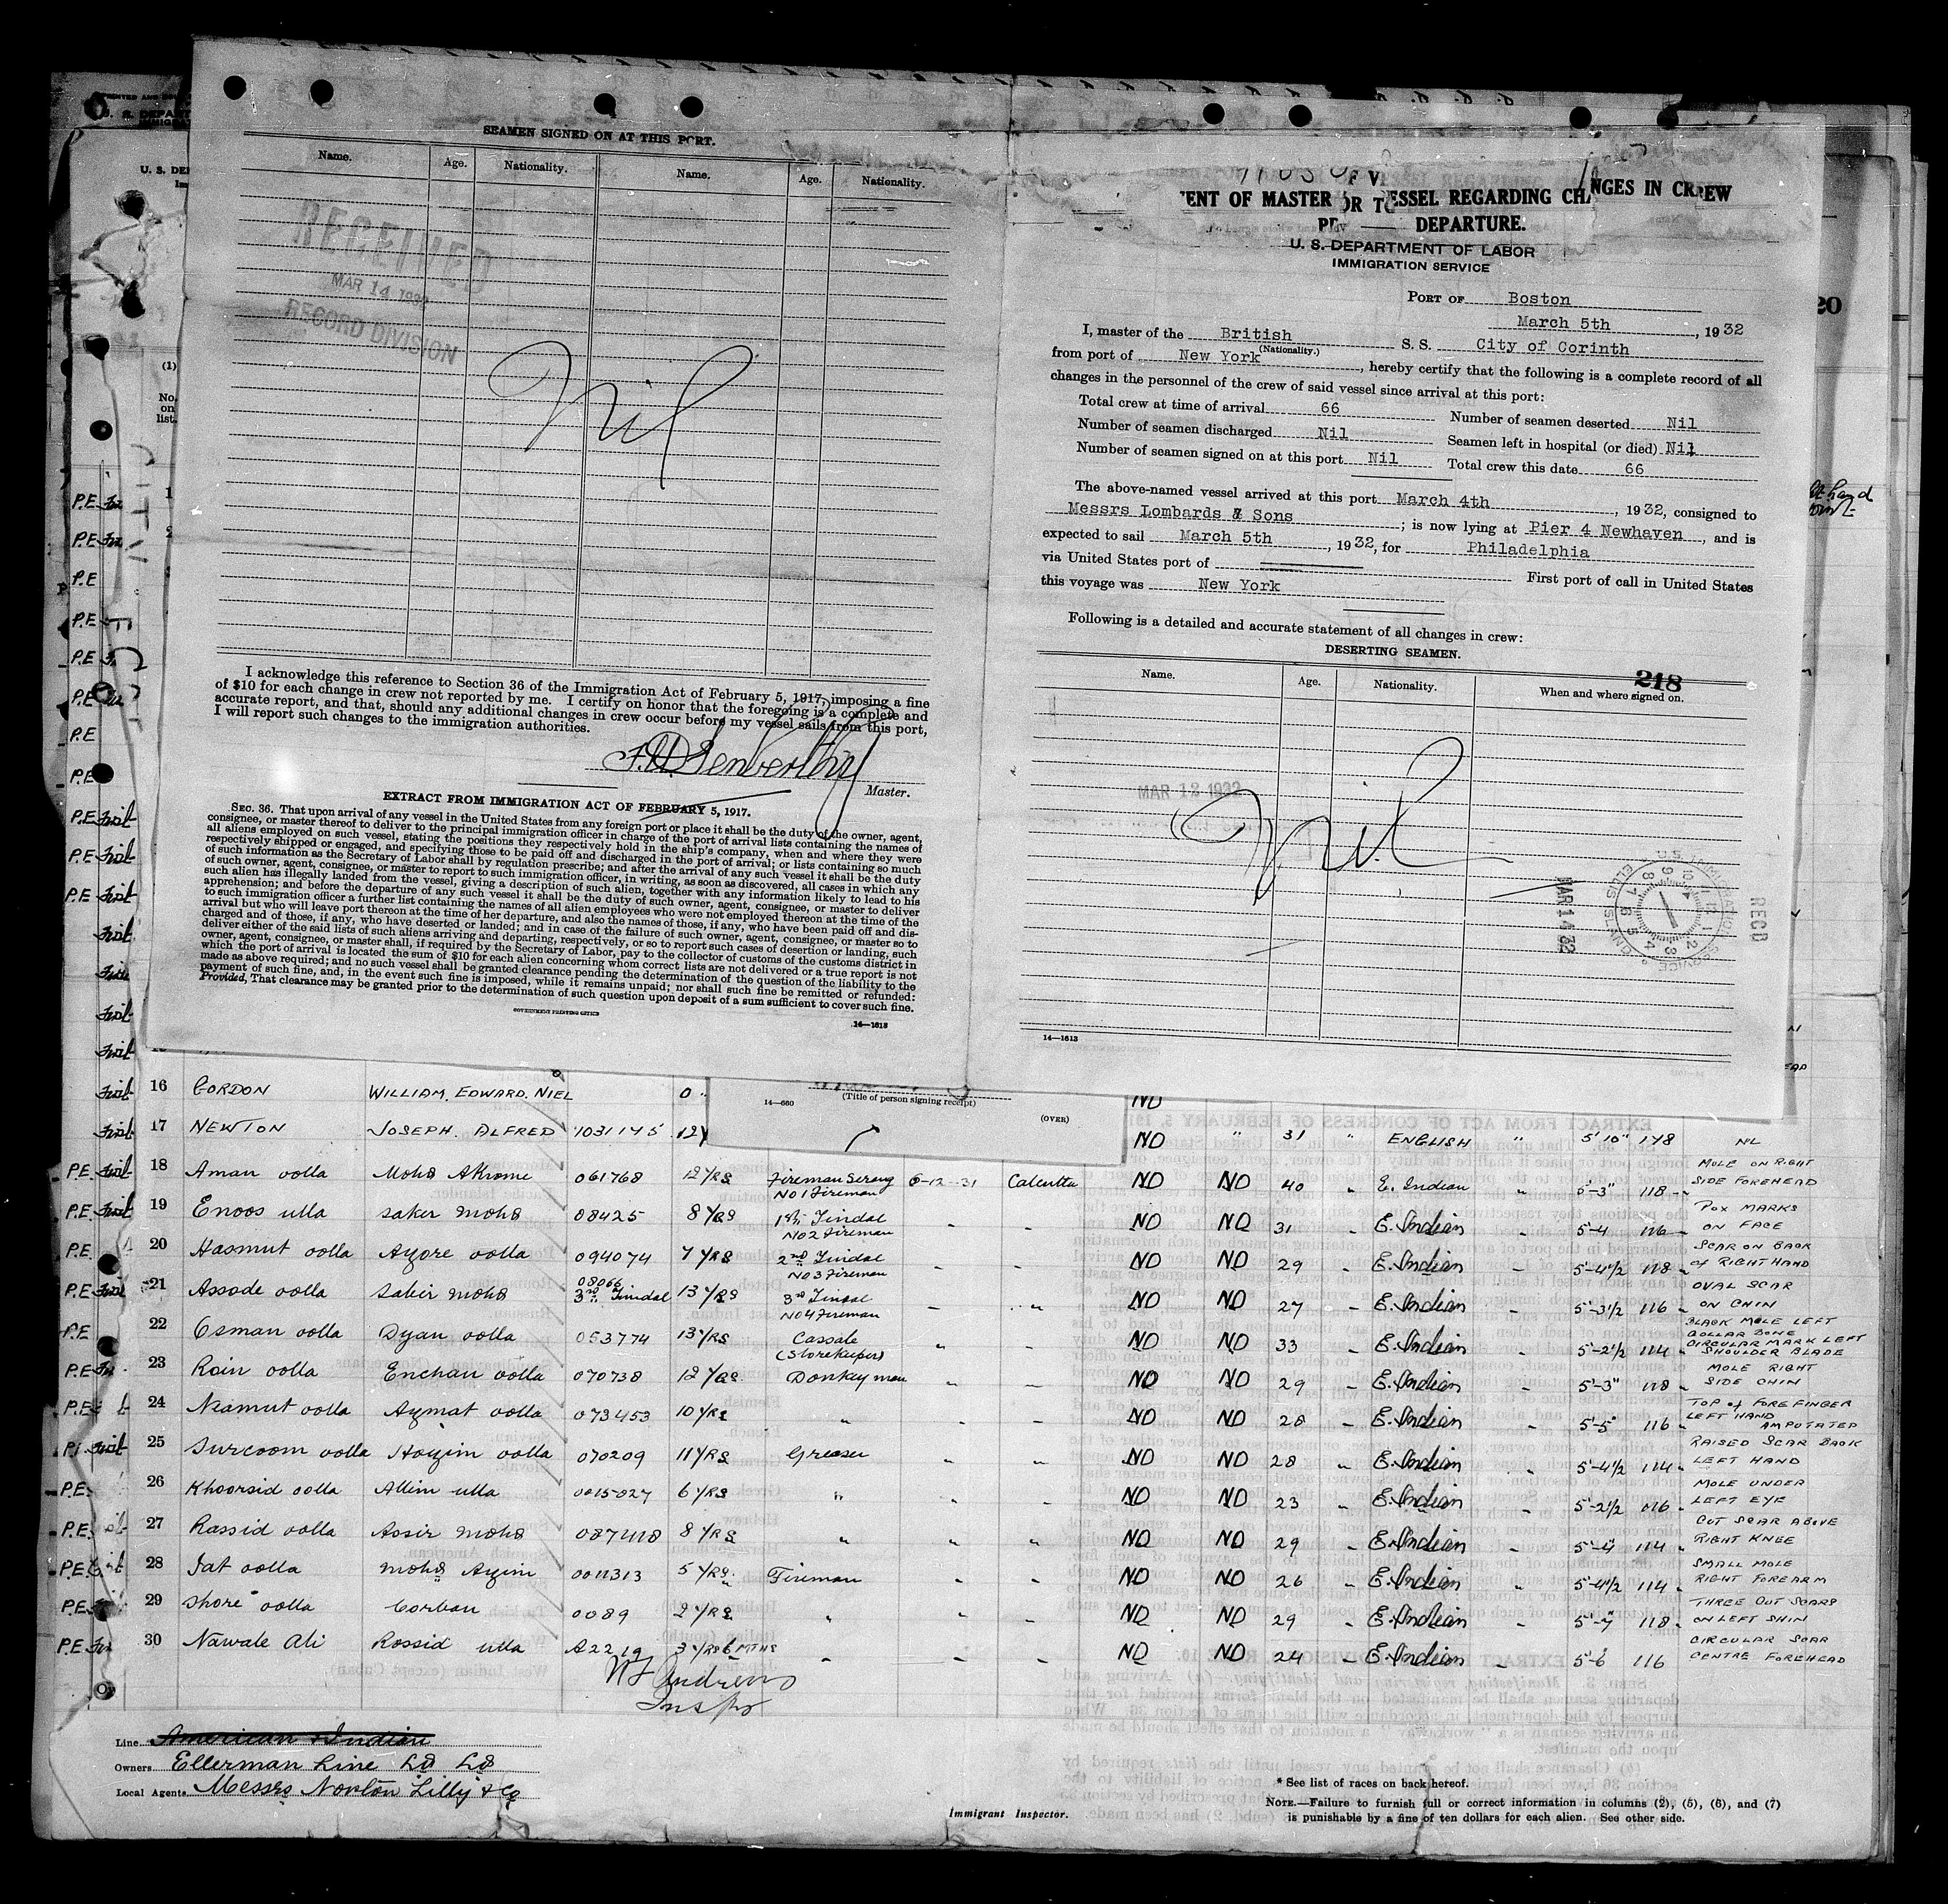 SEAMEN SIGNED ON AT THIS PORT.
Name. Age. Nationality. Name. Age. Nationality.
RECEIVED
MAR 14 1932
RECORD DIVISION
Nil
I acknowledge this reference to Section 36 of the Immigration Act of February 5, 1917, imposing a fine
of $10 for each change in crew not reported by me. I certify on honor that the foregoing is a complete and
accurate report, and that, should any additional changes in crew occur before my vessel sails from this port,
I will report such changes to the immigration authorities.
Master.
EXTRACT FROM IMMIGRATION ACT OF FEBRUARY 5, 1917.
SEC. 36. That upon arrival of any vessel in the United States from any foreign port or place it shall be the duty of the owner, agent,
consignee, or master thereof to deliver to the principal immigration officer in charge of the port of arrival lists containing the names of
all aliens employed on such vessel, stating the positions they respectively hold in the ship's company, when and where they were
respectively shipped or engaged, and specifying those to be paid off and discharged in the port of arrival; or lists containing so much
of such information as the Secretary of Labor shall by regulation prescribe; and after the arrival of any such vessel it shall be the duty
of such owner, agent, consignee, or master to report to such immigration officer, in writing, as soon as discovered, all cases in which any
such alien has illegally landed from the vessel, giving a description of such alien, together with any information likely to lead to his
apprehension; and before the departure of any such vessel it shall be the duty of such owner, agent, consignee, or master to deliver
to such immigration officer a further list containing the names of all alien employees who were not employed thereon at the time of the
arrival but who will leave port thereon at the time of her departure, and also the names of those, if any, who have been paid off and dis-
charged and of those, if any, who have deserted or landed; and in case of the failure of such owner, agent, consignee, or master so to
deliver either of the said lists of such aliens arriving and departing, respectively, or so to report such cases of desertion or landing, such
owner, agent, consignee, or master shall, if required by the Secretary of Labor, pay to the collector of customs of the customs district in
which the port of arrival is located the sum of $10 for each alien concerning whom correct lists are not delivered or a true report is not
made as above required; and no such vessel shall be granted clearance pending the determination of the question of the liability to the
payment of such fine, and, in the event such fine is imposed, while it remains unpaid; nor shall such fine be remitted or refunded:
Provided, That clearance may be granted prior to the determination of such question upon deposit of a sum sufficient to cover such fine.
GOVERNMENT PRINTING OFFICE
14—1613
ENT OF MASTER OR VESSEL REGARDING CHANGES IN CREW
DEPARTURE.
U. S. DEPARTMENT OF LABOR
IMMIGRATION SERVICE
PORT OF Boston
March 5th, 1932
I, master of the British S. S. City of Corinth
(Nationality.)
from port of New York, hereby certify that the following is a complete record of all
changes in the personnel of the crew of said vessel since arrival at this port:
Total crew at time of arrival 66 Number of seamen deserted Nil
Number of seamen discharged Nil Seamen left in hospital (or died) Nil
Number of seamen signed on at this port Nil Total crew this date 66
The above-named vessel arrived at this port March 4th, 1932, consigned to
Messrs Lombards & Sons; is now lying at Pier 4 Newhaven, and is
expected to sail March 5th, 1932, for Philadelphia
via United States port of First port of call in United States
this voyage was New York
Following is a detailed and accurate statement of all changes in crew:
DESERTING SEAMEN.
218
Name. Age. Nationality. When and where signed on.
MAR 12 1932
Nil
MAR 14 32
RECD
14—1613
14—660
(Title of person signing receipt)
(OVER)
16 GORDON WILLIAM EDWARD NIEL
17 NEWTON JOSEPH. ALFRED 1031145 12Y NO " 31 " ENGLISH " 5'10" 148 NL
18 Aman oolla Mohd Akrome 061768 12 YRS Fireman Serang 6-12-31 Calcutta NO NO 40 " E. Indian " 5'-3" 118 MOLE ON RIGHT SIDE FOREHEAD
19 Enoos ulla Saker Mohd 08425 8 YRS No 1 Fireman 1st Tindal NO NO 31 E. Indian 5'-4 116 POX MARKS ON FACE
20 Hasmut oolla Ayore oolla 094074 7 YRS No 2 Fireman 2nd Tindal NO NO 29 E. Indian 5'-4 1/2 118 SCAR ON BACK of RIGHT HAND
21 Assode oolla Sakir Mohd 08066 3rd Tindal 13 YRS No 3 Fireman 3rd Tindal NO NO 27 E. Indian 5'-3 1/2 116 OVAL SCAR ON CHIN
22 Osman oolla Dyan oolla 053774 13 YRS No 4 Fireman Cassab (Storekeeper) NO NO 33 E. Indian 5'-2 1/2 114 BLACK MOLE LEFT COLLAR BONE CIRCULAR MARK LEFT SHOULDER BLADE
23 Roin oolla Enchan oolla 070738 12 YRS Donkeyman NO NO 29 E. Indian 5'-3" 118 MOLE RIGHT SIDE CHIN
24 Neamut oolla Aymat oolla 073453 10 YRS " NO NO 28 E. Indian 5'-5 116 TOP of FOREFINGER LEFT HAND AMPUTATED
25 Surcoom oolla Hoyim oolla 070209 11 YRS Greaser NO NO 28 E. Indian 5'-4 1/2 114 RAISED SCAR BACK LEFT HAND
26 Khoorsid oolla Allim ulla 0015027 6 YRS " NO NO 23 E. Indian 5'-2 1/2 MOLE UNDER LEFT EYE
27 Rassid oolla Assir Mohd 8 YRS " NO NO 29 E. Indian 5'-4 114 CUT SCAR ABOVE RIGHT KNEE
28 Jat oolla Mohd Ayim 0011313 5 YRS Fireman NO NO 26 E. Indian 5'-4 1/2 114 SMALL MOLE RIGHT FOREARM
29 Shore oolla Corban 0089 2 YRS " NO NO 29 E. Indian 118 THREE CUT SCARS ON LEFT SHIN
30 Nawab Ali Rossid ulla A2219 3 YRS 6 MTHS " NO NO 24 E. Indian 5'-6 116 CIRCULAR SCAR CENTRE FOREHEAD
W Andrews
Inspr
Line American & Indian
Owners Ellerman Line Ld
Local Agents Messrs Norton Lilly & Co
Immigrant Inspector.
* See list of races on back hereof.
NOTE.—Failure to furnish full or correct information in columns (2), (5), (6), and (7)
is punishable by a fine of ten dollars for each alien. See other side.